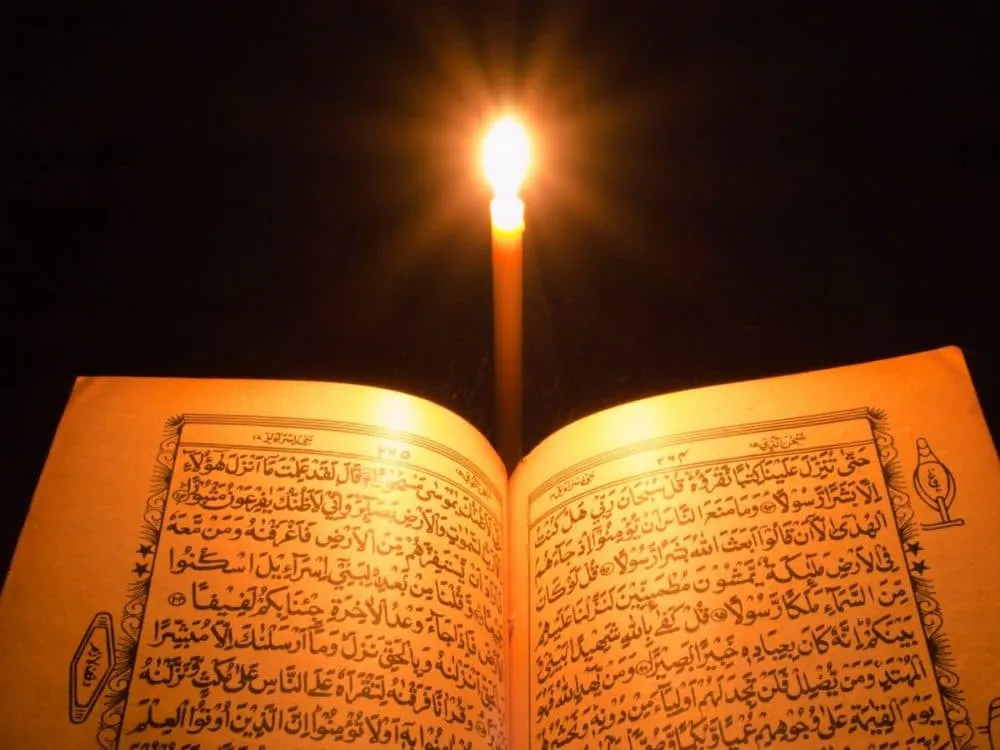 سُبْحٰنَ الَّذِيْ ١٥
٣٦٤
حَتّٰى تُنَزِّلَ عَلَيْنَا كِتٰبًا نَّقْرَؤُهٗ قُلْ سُبْحَانَ رَبِّيْ هَلْ كُنْتُ
اِلَّا بَشَرًا رَّسُوْلًا ٩٣ وَمَا مَنَعَ النَّاسَ اَنْ يُّؤْمِنُوْٓا اِذْ جَآءَهُمُ
الْهُدٰٓى اِلَّآ اَنْ قَالُوْٓا اَبَعَثَ اللّٰهُ بَشَرًا رَّسُوْلًا ٩٤ قُلْ لَّوْ كَانَ
فِي الْاَرْضِ مَلٰٓئِكَةٌ يَّمْشُوْنَ مُطْمَئِنِّيْنَ لَنَزَّلْنَا عَلَيْهِمْ
مِّنَ السَّمَآءِ مَلَكًا رَّسُوْلًا ٩٥ قُلْ كَفٰى بِاللّٰهِ شَهِيْدًا بَيْنِيْ وَ
بَيْنَكُمْ اِنَّهٗ كَانَ بِعِبَادِهٖ خَبِيْرًا بَصِيْرًا ٩٦ وَمَنْ يَّهْدِ اللّٰهُ فَهُوَ
الْمُهْتَدِ وَمَنْ يُّضْلِلْ فَلَنْ تَجِدَ لَهُمْ اَوْلِيَآءَ مِنْ دُوْنِهٖ وَنَحْشُرُهُمْ
يَوْمَ الْقِيٰمَةِ عَلٰى وُجُوْهِهِمْ عُمْيًا وَّبُكْمًا وَّصُمًّا
٣٦٥
بَنِيْٓ اِسْرَآءِيْلَ ١٧
لَاَظُنُّكَ يٰمُوْسٰى مَسْحُوْرًا قَالَ لَقَدْ عَلِمْتَ مَآ اَنْزَلَ هٰٓؤُلَآءِ
السَّمٰوٰتِ وَالْاَرْضِ بَصَآئِرَ وَاِنِّيْ لَاَظُنُّكَ يٰفِرْعَوْنُ مَثْبُوْرًا ١٠٢
اَنْ يَّسْتَفِزَّهُمْ مِّنَ الْاَرْضِ فَاَغْرَقْنٰهُ وَمَنْ مَّعَهٗ
وَّقُلْنَا مِنْۢ بَعْدِهٖ لِبَنِيْٓ اِسْرَآءِيْلَ اسْكُنُوا
فَاِذَا جَآءَ وَعْدُ الْاٰخِرَةِ جِئْنَا بِكُمْ لَفِيْفًا ١٠٤
اَنْزَلْنٰهُ وَبِالْحَقِّ نَزَلَ وَمَآ اَرْسَلْنٰكَ اِلَّا مُبَشِّرًا
وَقُرْاٰنًا فَرَقْنٰهُ لِتَقْرَاَهٗ عَلَى النَّاسِ عَلٰى مُكْثٍ وَّنَزَّلْنٰهُ
اٰمِنُوْا بِهٖٓ اَوْ لَا تُؤْمِنُوْا اِنَّ الَّذِيْنَ اُوْتُوا الْعِلْمَ